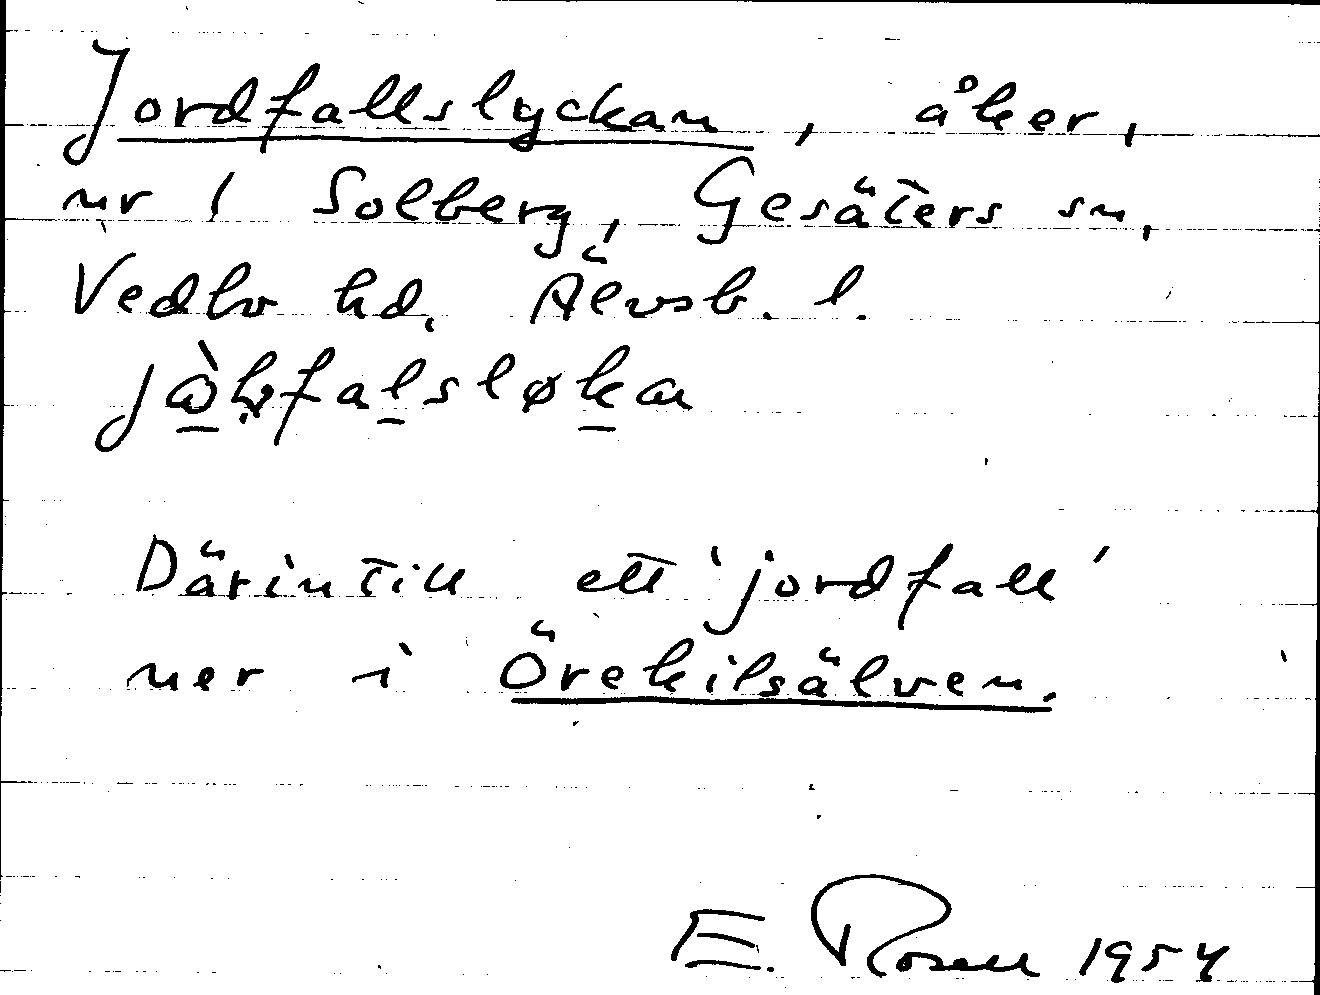 Jordfallslyckan, åker,
nr 1 Solberg, Gesäters sn,
Vedbo hd, Älvsb. l.
Därintill ett 'jordfall'
ner i Örekilsälven.
E. Rosell 1954